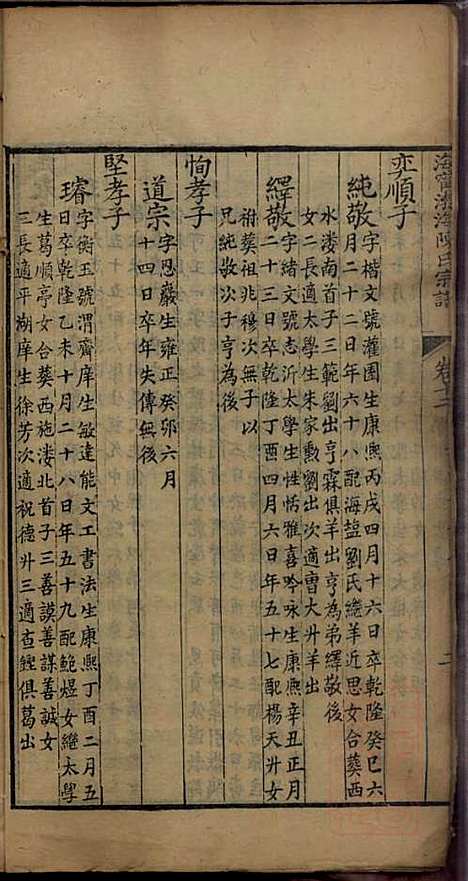 海寧渤海陳氏宗譜 卷十二
二
奕順子
純敬 字楷文號灌園生康熙丙戌四月十六日卒乾隆癸巳六
月二十二日年六十八配海鹽劉氏繼羊近思女合葬西
水溇南首子三範劉出亨霖俱羊出亨為弟繹敬後
女二長適太學生朱家勳劉出次適曹大升羊出
繹敬 字緒文號志沂太學生性恬雅喜吟咏生康熙辛丑正月
二十三日卒乾隆丁酉四月六日年五十七配楊天升女
祔葬祖兆穆次無子以
兄純敬次子亨為後
恂孝子
道宗 字恩巖生雍正癸卯六月
十四日卒年失傳無後
堅孝子
璿 字衡玉號渭齋庠生敏達能文工書法生康熙丁酉二月五
日卒乾隆乙未十月二十八日年五十九配鮑煜女繼太學
生葛順亭女合葬西施溇北首子三善謨善謀善誠女
三長適平湖庠生徐芳次適祝德升三適查鏗俱葛出